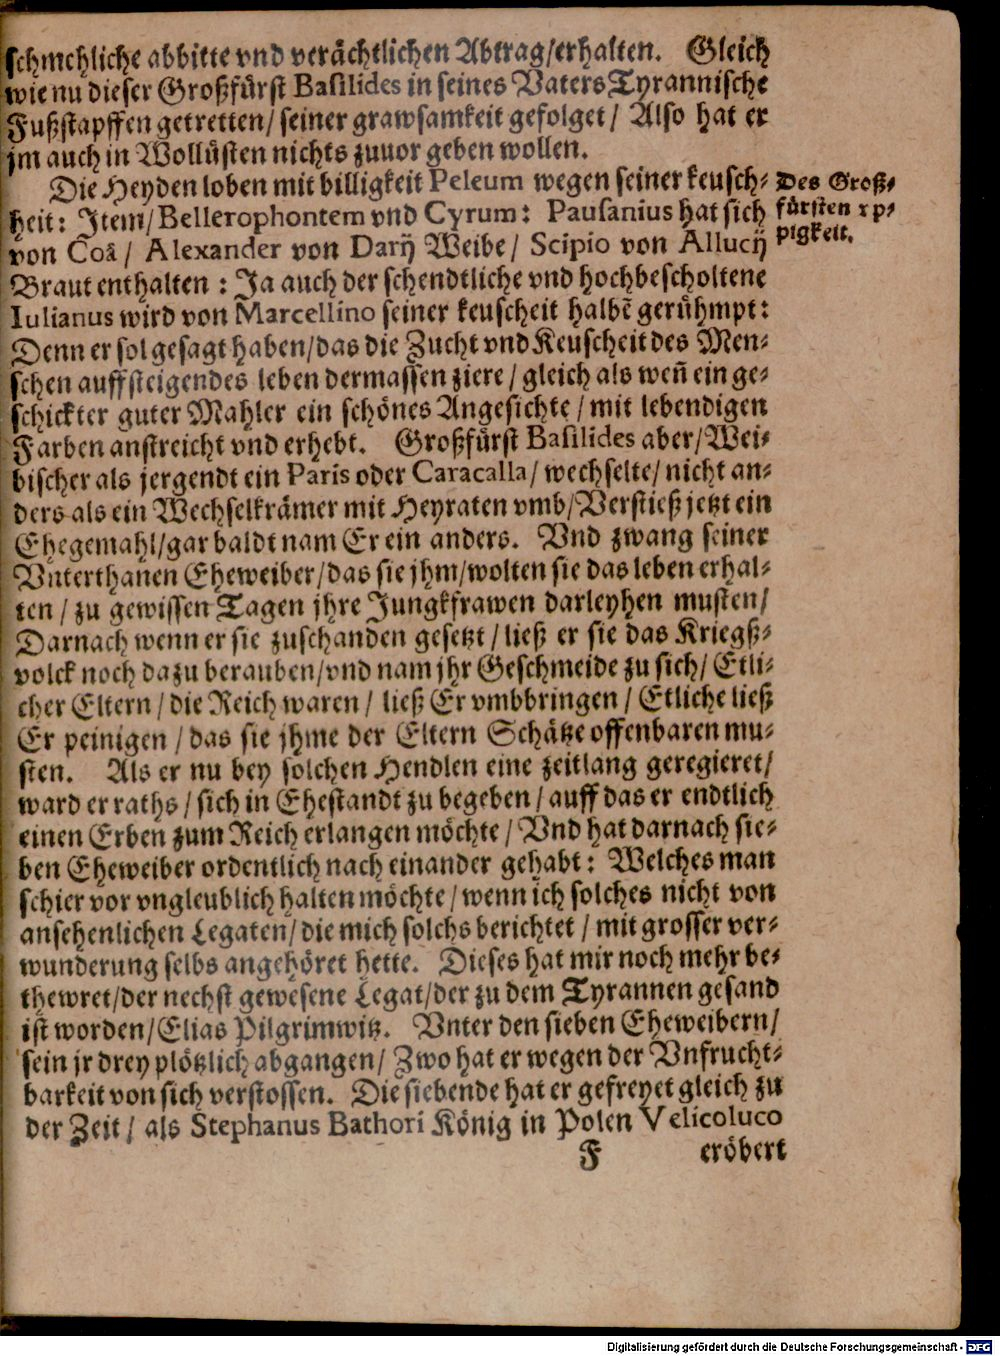 schmehliche abbitte vnd verächtlichen Abtrag/erhalten. Gleich
wie nu dieser Großfürst Basilides in seines Vaters Tyrannische
Fußstapffen getretten/ seiner grawsamkeit gefolget/ Also hat er
jm auch in Wollüsten nichts zuuor geben wollen.
Die Heyden loben mit billigkeit Peleum wegen seiner keusch-
heit: Item/ Bellerophontem vnd Cyrum: Pausanius hat sich
von Coâ/ Alexander von Darij Weibe/ Scipio von Allucij
Braut enthalten: Ja auch der schendtliche vnd hochbescholtene
Iulianus wird von Marcellino seiner keuscheit halbẽ gerühmpt:
Denn er sol gesagt haben/das die Zucht vnd Keuscheit des Men-
schen auffsteigendes leben dermassen ziere/ gleich als weñ ein ge-
schickter guter Mahler ein schönes Angesichte/ mit lebendigen
Farben anstreicht vnd erhebt. Großfürst Basilides aber/Wei-
bischer als jergendt ein Paris oder Caracalla/ wechselte/ nicht an-
ders als ein Wechselkrämer mit Heyraten vmb/Verstieß jetzt ein
Ehegemahl/gar baldt nam Er ein anders. Vnd zwang seiner
Vnterthanen Eheweiber/das sie jhm/wolten sie das leben erhal-
ten/ zu gewissen Tagen jhre Jungkfrawen darleyhen musten/
Darnach wenn er sie zuschanden gesetzt/ ließ er sie das Kriegß-
volck noch dazu berauben/vnd nam jhr Geschmeide zu sich/ Etli-
cher Eltern/ die Reich waren/ ließ Er vmbbringen/ Etliche ließ
Er peinigen/ das sie jhme der Eltern Schätze offenbaren mu-
sten. Als er nu bey solchen Hendlen eine zeitlang geregieret/
ward er raths/ sich in Ehestandt zu begeben/ auff das er endtlich
einen Erben zum Reich erlangen möchte/ Vnd hat darnach sie-
ben Eheweiber ordentlich nach einander gehabt: Welches man
schier vor vngleublich halten möchte/ wenn ich solches nicht von
ansehenlichen Legaten/ die mich solchs berichtet/ mit grosser ver-
wunderung selbs angehöret hette. Dieses hat mir noch mehr be-
thewret/der nechst gewesene Legat/der zu dem Tyrannen gesand
ist worden/Elias Pilgrimwitz. Vnter den sieben Eheweibern/
sein jr drey plötzlich abgangen/ Zwo hat er wegen der Vnfrucht-
barkeit von sich verstossen. Die siebende hat er gefreyet gleich zu
der Zeit/ als Stephanus Bathori König in Polen Velicoluco
F eröbert
Des Groß-
fürsten vp-
pigkeit.
Digitalisierung gefördert durch die Deutsche Forschungsgemeinschaft - DFG